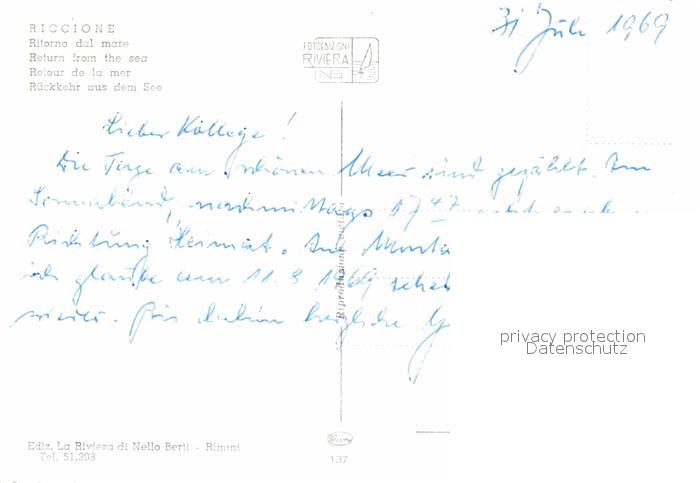 RICCIONE
Ritorno dal mare
Return from the sea
Retour de la mer
Rückkehr aus dem See
FOTOEDIZIONI
RIVIERA
31 Juli 1969
Lieber Kollege!
Die Tage am schönen Meer sind gezählt. Am
Sonnabend, nachmittags 17 47
Richtung Heimat. Am
ich glaube am 11. 1969
wieder. Bis dahin herzliche
privacy protection
Datenschutz
Ediz. La Riviera di Nello Berti - Rimini
Tel. 51.308
137